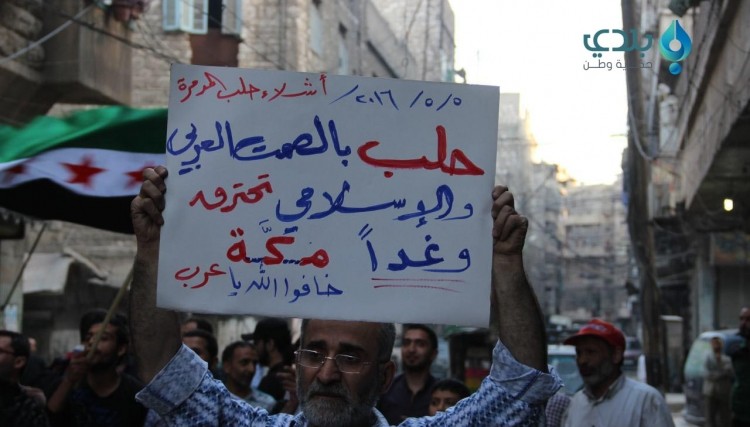 بلدي
حملة وطن
أشلاء حلب المدمرة ٢٠١٦/٥/٥
حلب بالصمت العربي
والإسلامي تحترق
وغداً مكَّة
خافوا الله يا عرب